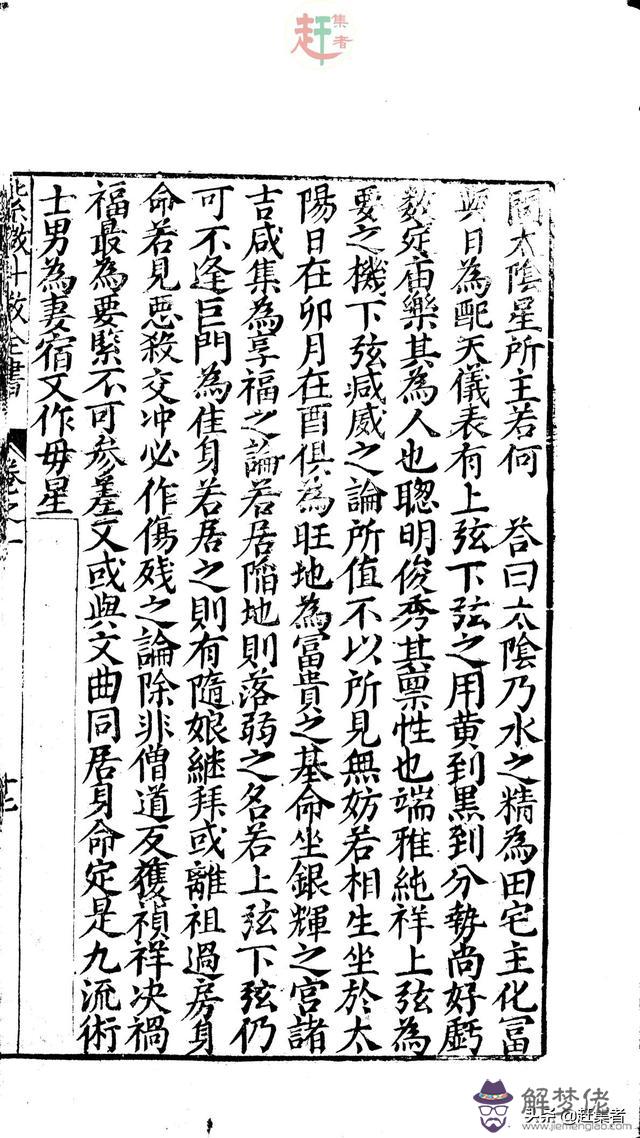 赶集者
問太陰星所主若何 荅曰太陰乃水之精為田宅主化冨
與日為配天儀表有上弦下弦之用黄到黒到分㔟尚好虧
数定庙樂其為人也聦明俊秀其禀性也端雅純祥上弦為
要之機下弦减威之論所值不以所見無妨若相生坐於太
陽日在卯月在酉俱為旺地為冨貴之基命坐銀輝之宫諸
吉咸集為享福之論若居陷地則落弱之名若上弦下弦仍
可不逢巨門為佳身若居之則有隨娘継拜或離祖過房身
命若見恶殺交冲必作傷残之論除非僧道反獲禎祥决禍
福最為要緊不可参差又或與文曲同居身命定是九流術
士男為妻宿又作毋星
微斗数全書 卷之一
十七
解梦佬
www.jiemenglao.com
头条 @赶集者